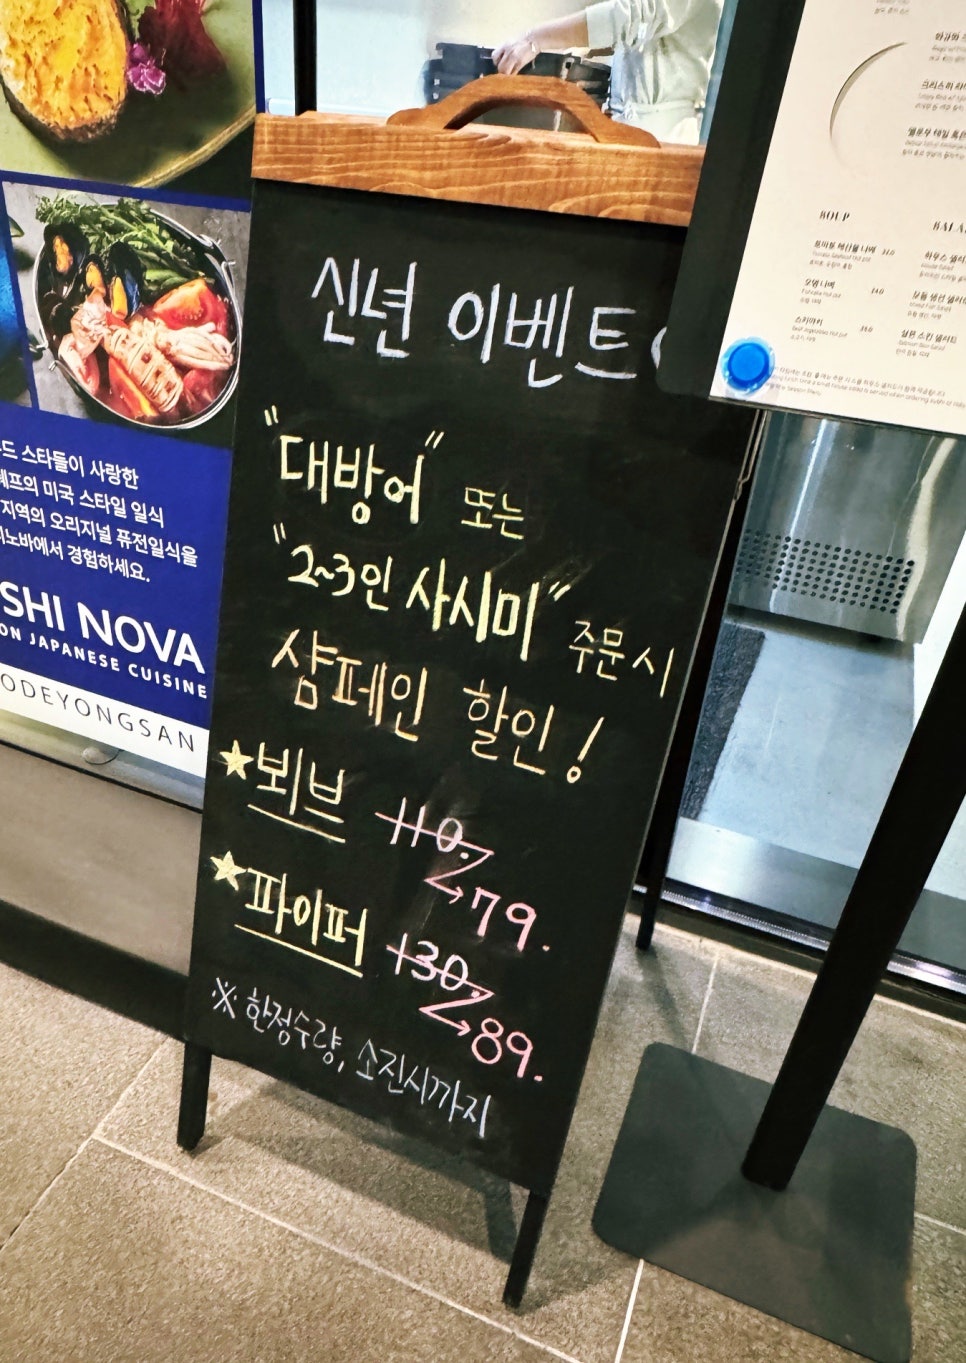 신년 이벤트
"대방어" 또는
"2~3인 사시미" 주문시
샴페인 할인!
★뵈브 110.
→79.
★파이퍼 130.
→89.
※ 한정수량, 소진시까지
드 스타들이 사랑한
셰프의 미국 스타일 일식
지역의 오리지널 퓨전일식을
노바에서 경험하세요.
SHI NOVA
ON JAPANESE CUISINE
ODEYONGSAN
SOUP
토마토 해산물 나베
오뎅 나베 24.0
스키야키
하우스 샐러
모듬 생선 샐러
살몬 스킨 샐러드